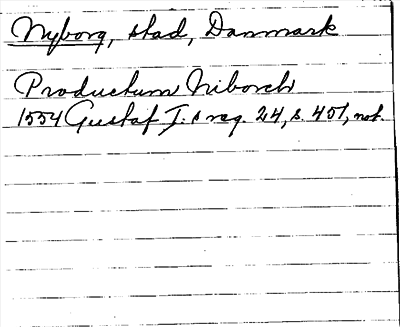 Nyborg, stad, Danmark
Productum Niborch
1554 Gustaf I:s reg. 24, s. 451, not.